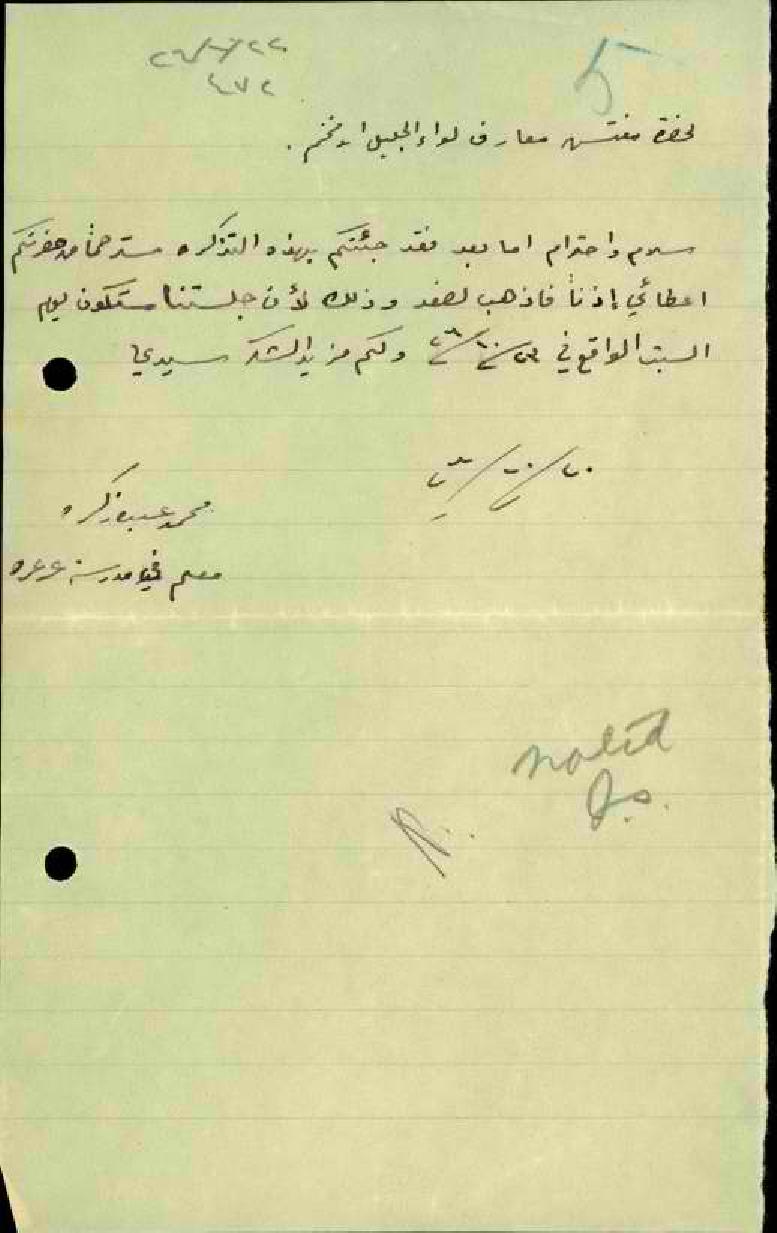 ٥
٢٦/٧/٢٢
٤٧٢
لحضرة مفتش معارف لواء الجليل الافخم .
سلام واحترام اما بعد فقد جئتكم بهذه التذكره مسترحماً من حضرتكم
اعطائي إذناً فاذهب لصفد وذلك لأن جلستنا ستكون يوم
السبت الواقع في ولكم مزيد الشكر سيدي
محمد
معلم في مدرسة عرعره
noted